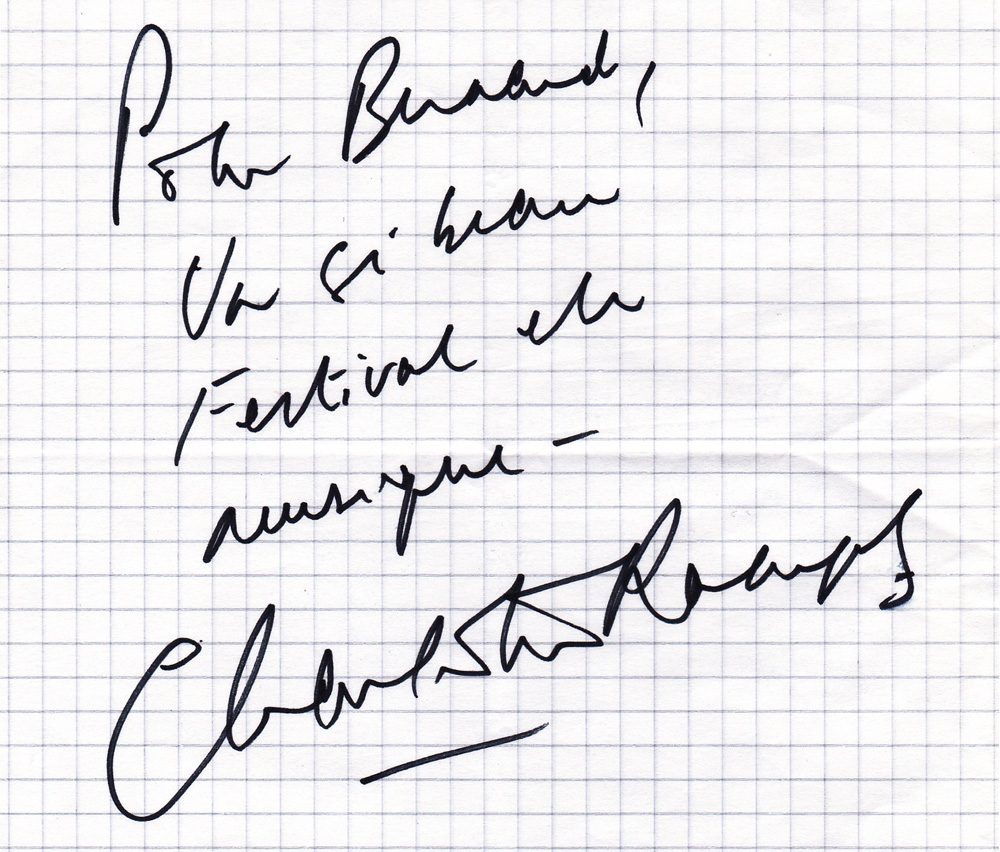 Pour Bernard,
Un si beau
Festival de
musique -
Charlotte Rampling